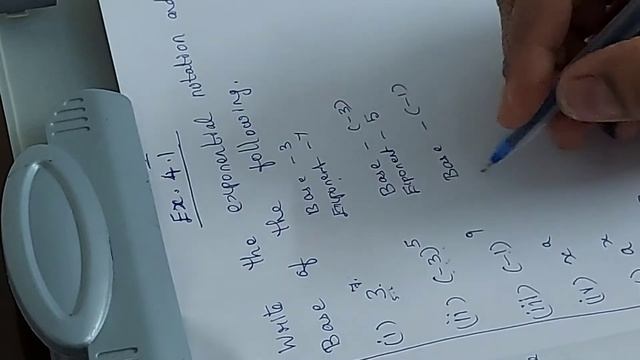 Ex. 4.1
Write the exponential notation and
Base of the following.
(i) 3 Base - 3
Exponent -
(ii) (-3) 5 Base - (-3)
Exponent - 5
(iii) (-1) 9 Base - (-1)
(iv) x a
a x